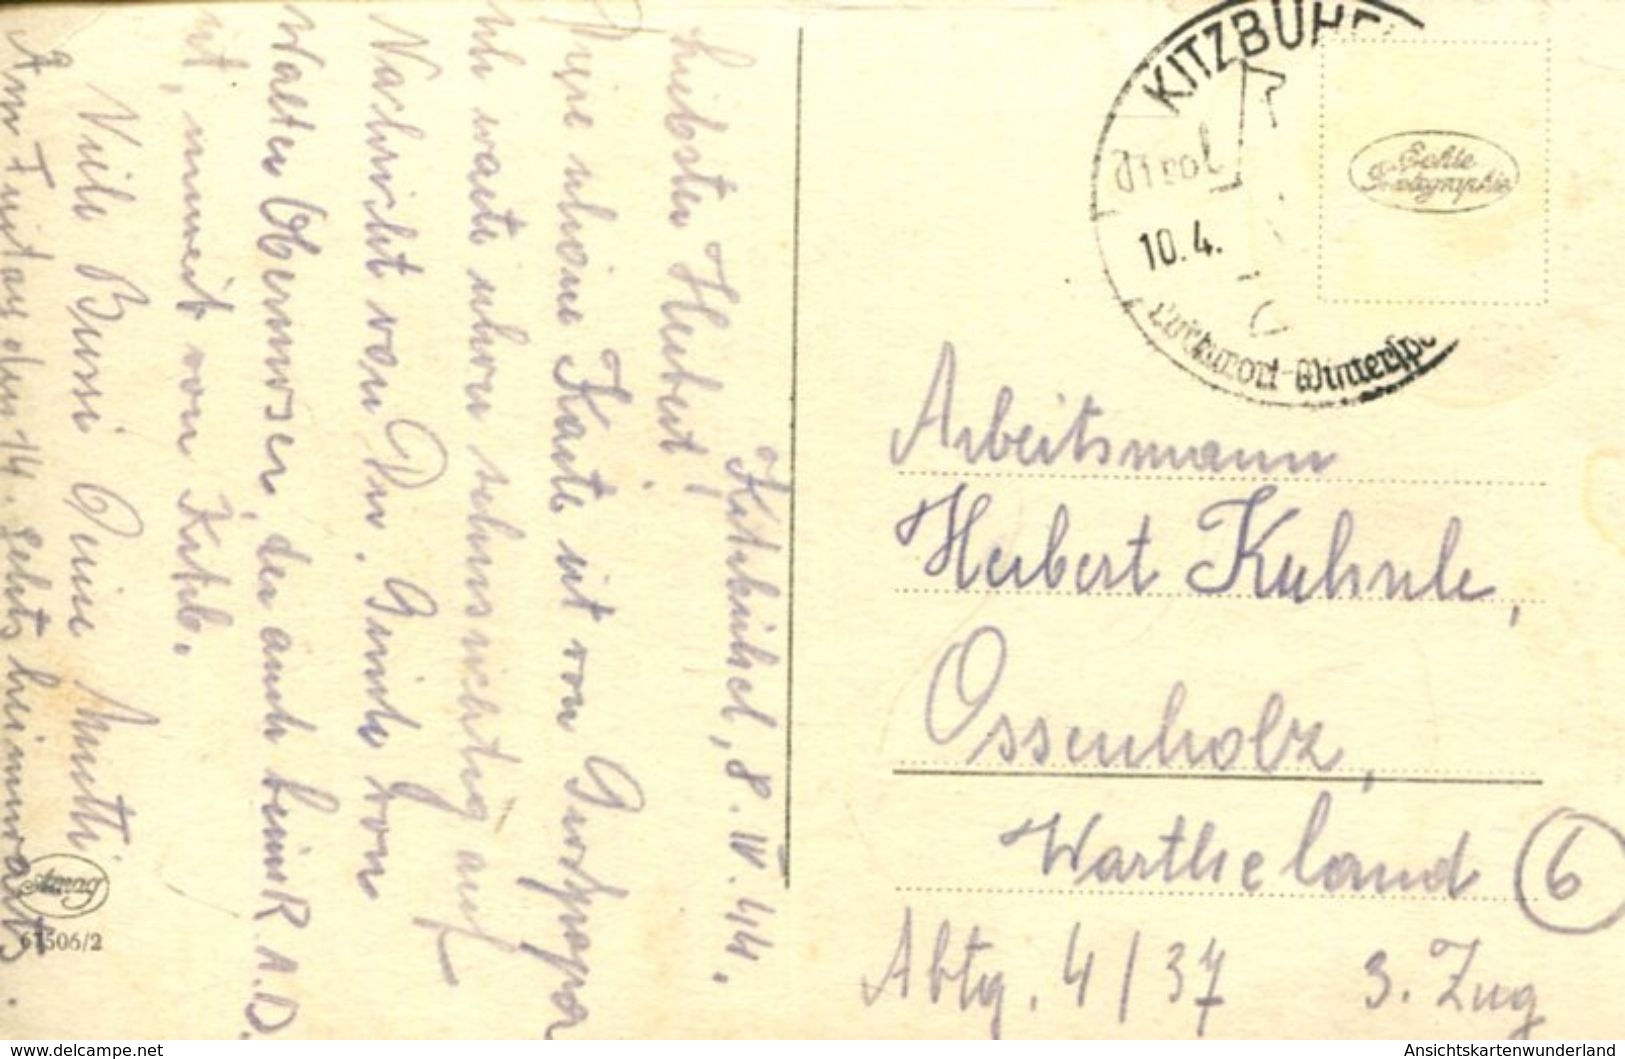 Kitzbühel, 8. IV. 44.
Liebster Herbert!
Diese schöne Karte ist von Großpapa
Ich warte schon sehnsüchtig auf
Nachricht von Dir. Grüße von
Walter Obermoser, der auch beim R.A.D.
ist, unweit von Kitzb.
Viele Bussi Deine Mutti
Am Freitag den 14. gehts heimwärts.
Amag
67506/2
KITZBÜHEL
Tirol
10.4.
Luftkurort-Wintersp
Echte
Photographie
Arbeitsmann
Herbert Kuhnle,
Ossenholz,
Wartheland
6
Abtg. 4/37 3. Zug
www.delcampe.net
Ansichtskartenwunderland